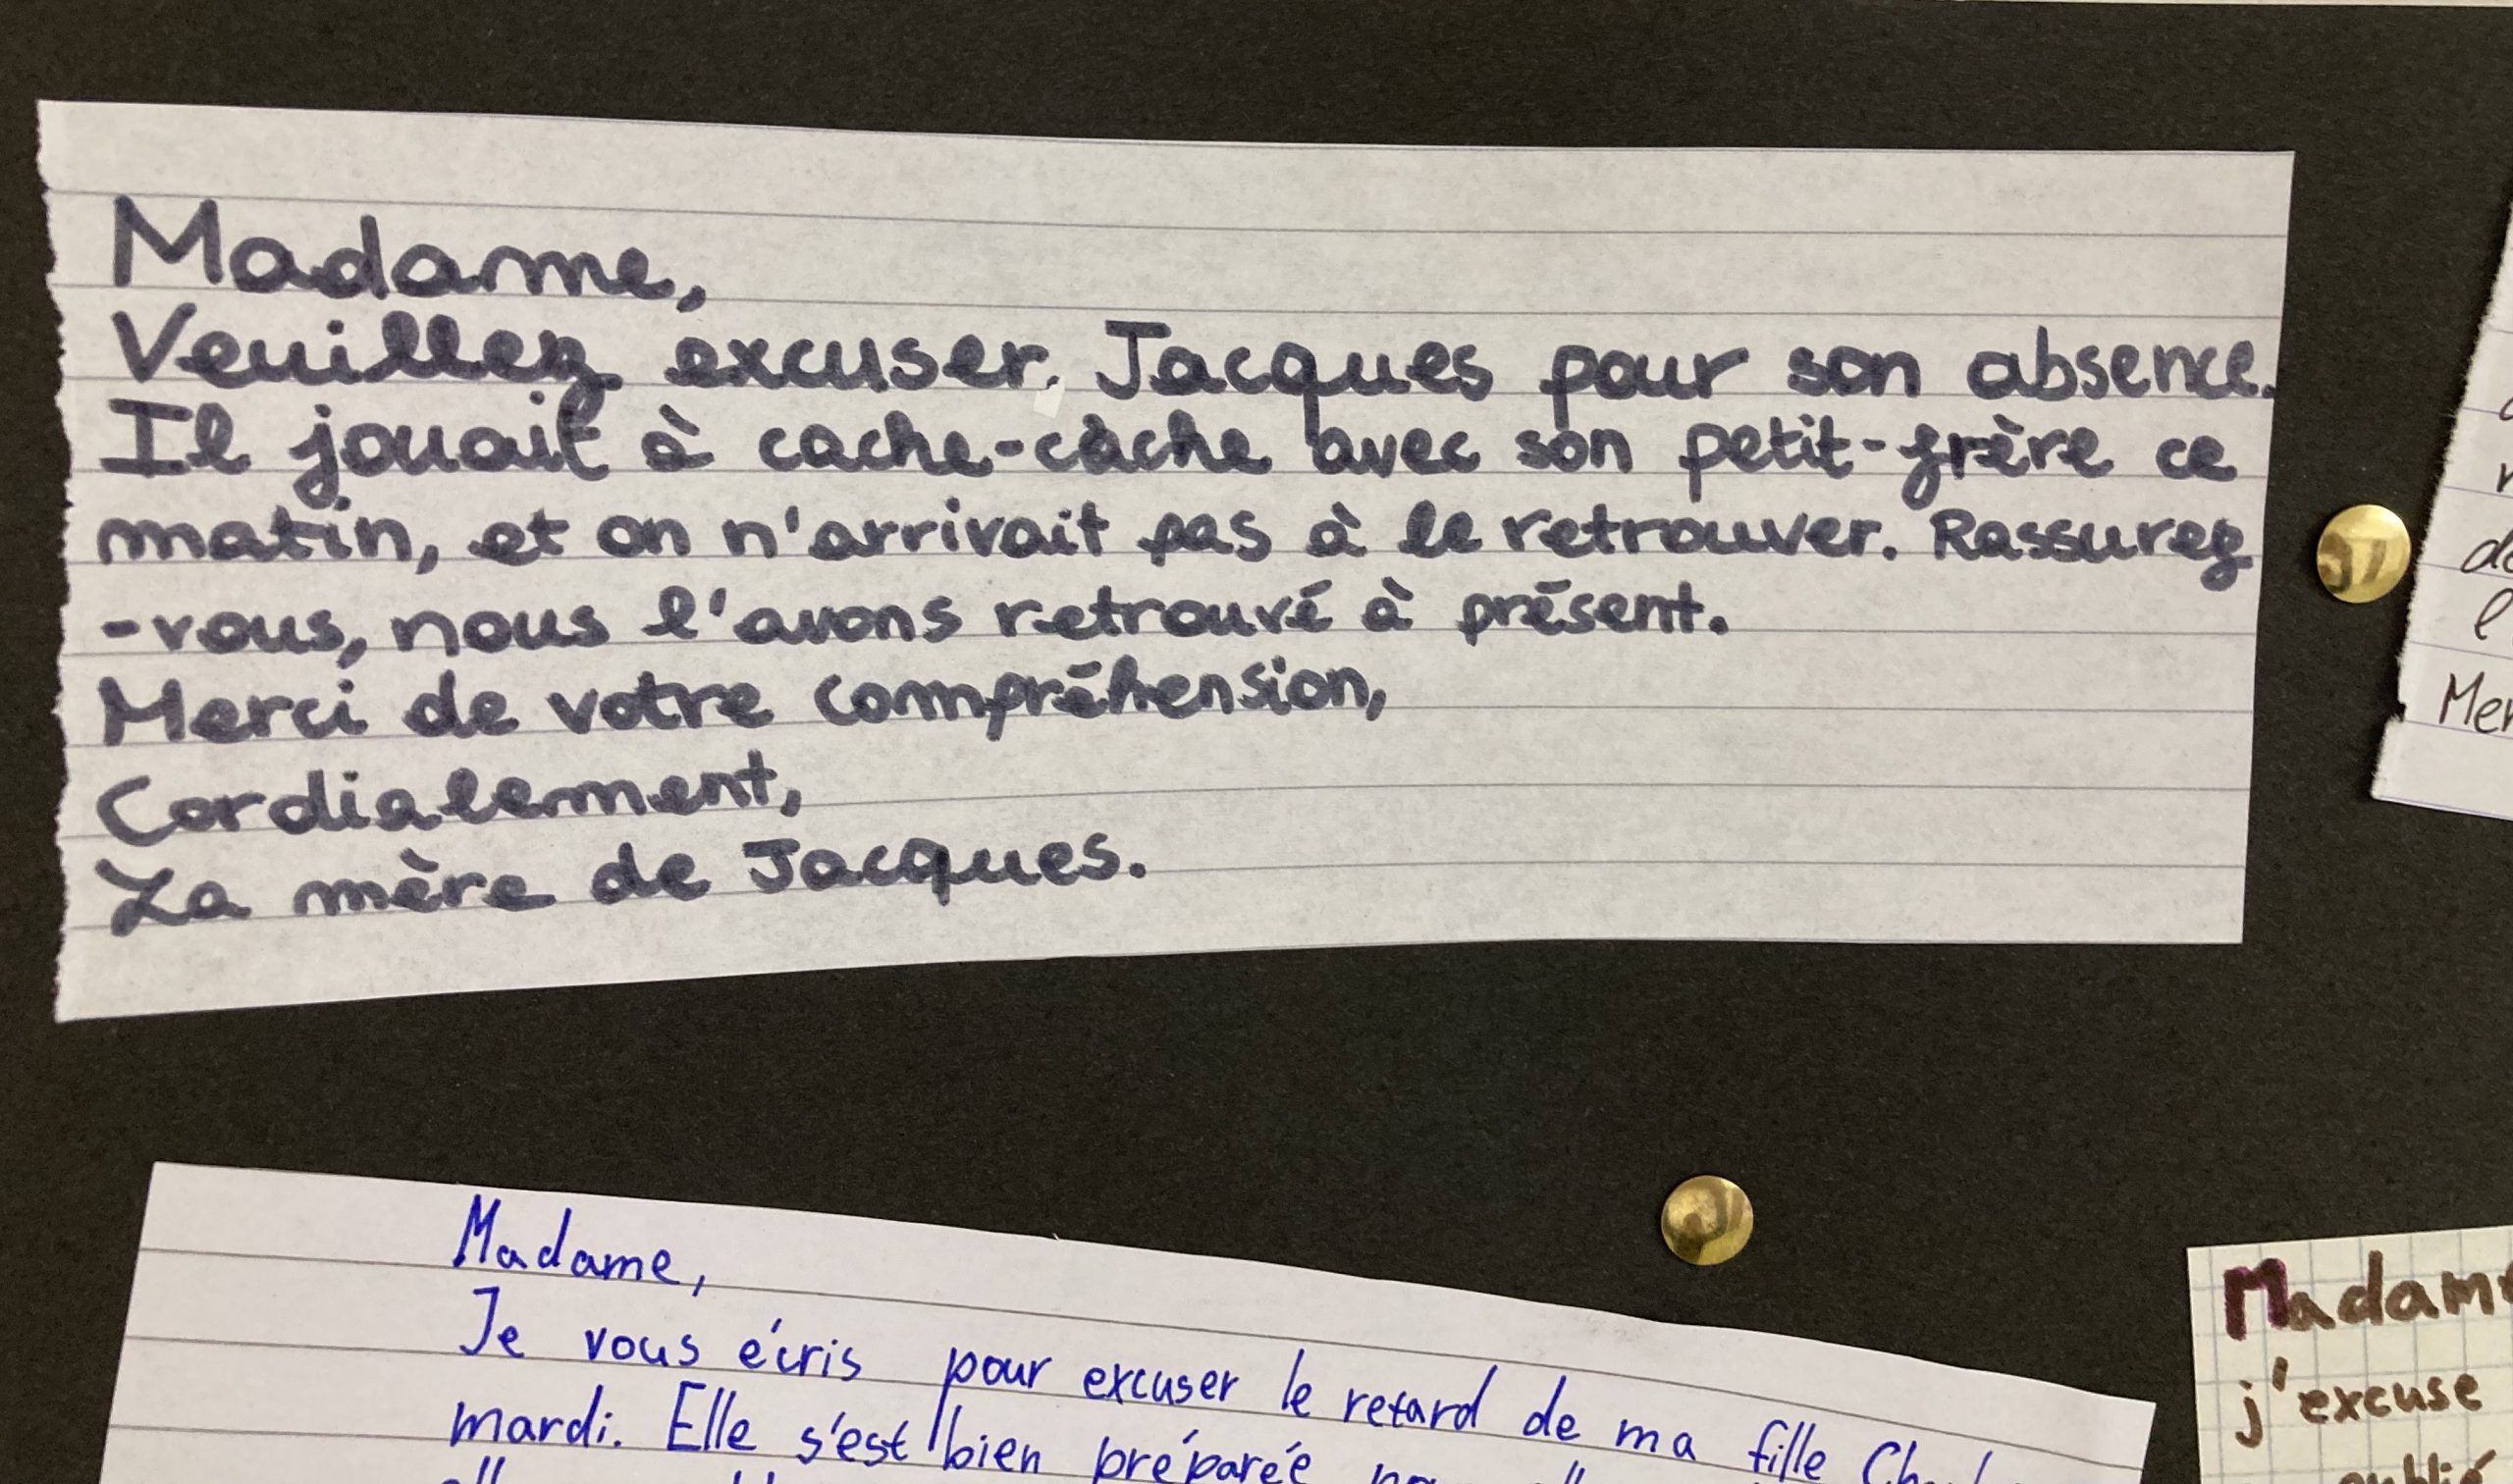 Madame,
Veuillez excuser. Jacques pour son absence.
Il jouait à cache-cache avec son petit-frère ce
matin, et on n'arrivait pas à le retrouver. Rassurez
-vous, nous l'avons retrouvé à présent.
Merci de votre compréhension,
Cordialement,
La mère de Jacques.
Madame,
Je vous écris pour excuser le retard de ma fille
mardi. Elle s'est bien préparée
j'excuse